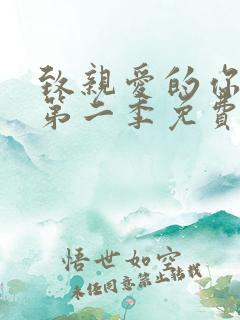 致親愛的你
第二季免費
悟世如空
未经同意禁止转载